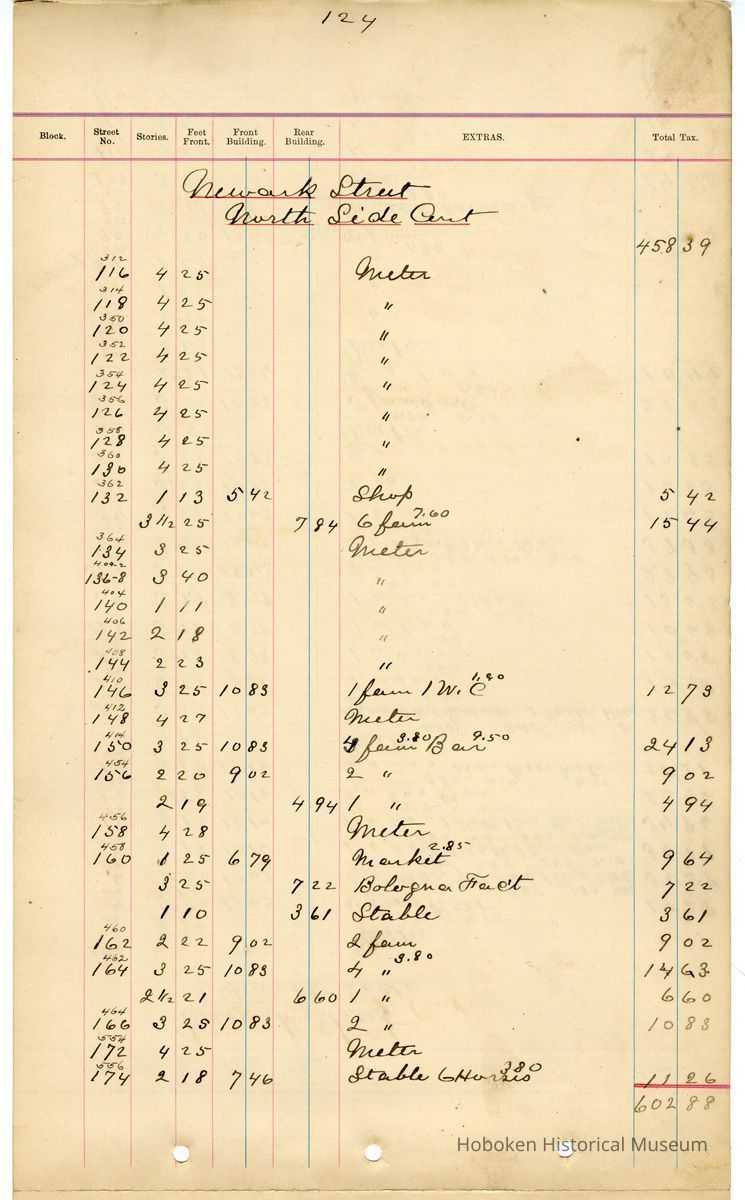 124
Block. Street No. Stories. Feet Front. Front Building. Rear Building. EXTRAS. Total Tax.
Newark Street
North Side Cont
458 39
312
116 4 25 Meter
314
118 4 25 "
350
120 4 25 "
352
122 4 25 "
354
124 4 25 "
356
126 4 25 "
358
128 4 25 "
360
130 4 25 "
362
132 1 13 5 42 Shop 5 42
3 1/2 25 7 84 6 fam 7.60 15 44
364
134 3 25 Meter
400-2
136-8 3 40 "
404
140 1 11 "
406
142 2 18 "
408
144 2 23 "
410
146 3 25 10 83 1 fam 1 W.C 1.90 12 73
412
148 4 27 Meter
414
150 3 25 10 83 fam 3.80 Bar 9.50 24 13
454
156 2 20 9 02 2 " 9 02
2 19 4 94 1 " 4 94
456
158 4 28 Meter
458
160 1 25 6 79 Market 2.85 9 64
3 25 7 22 Bologna Fact 7 22
1 10 3 61 Stable 3 61
460
162 2 22 9 02 2 fam 9 02
462
164 3 25 10 83 4 " 3.80 14 63
2 1/2 21 6 60 1 " 6 60
464
166 3 25 10 83 2 " 10 83
554
172 4 25 Meter
556
174 2 18 7 46 Stable 6 Horses 3.80 11 26
602 88
Hoboken Historical Museum